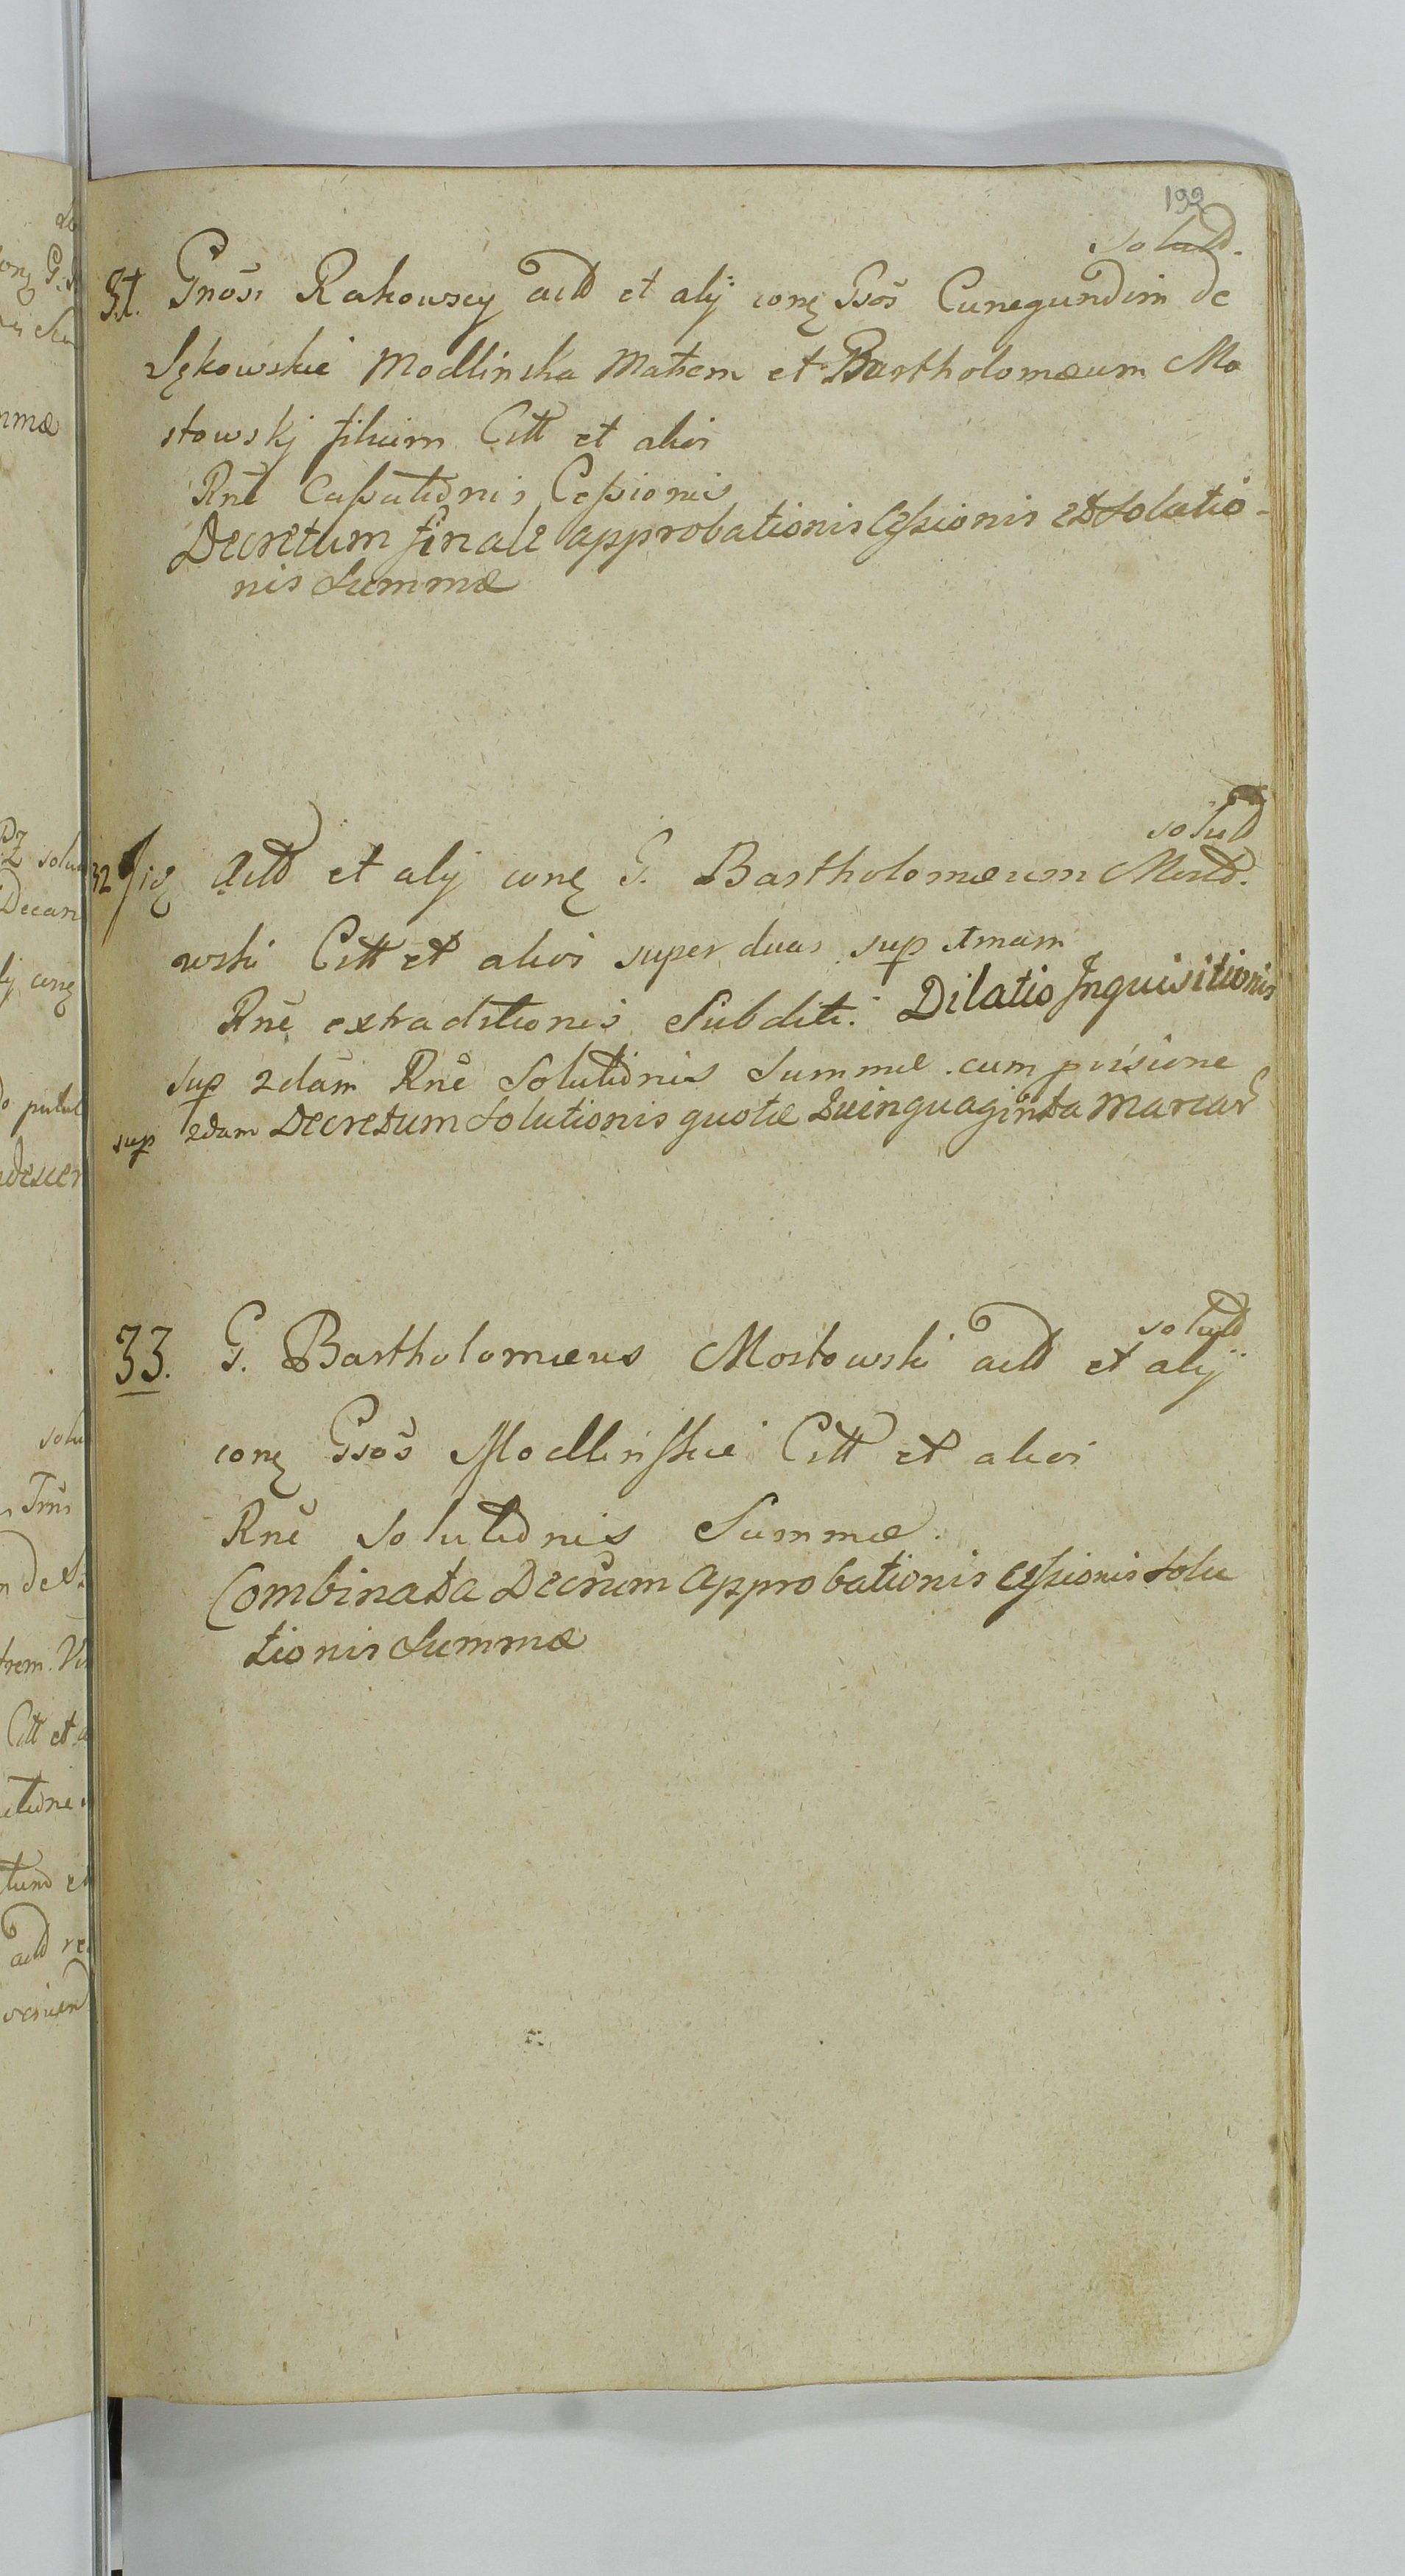 192
solutd.
31. Gnōsi Rakowscy actt et alij conq Gsōs Cunegundim de
Sękowskie Modlinska Matrem et Bartholomæum Mo
stowskj filium Citt et alios
Rnē Cassationis Cessionis
Decretum finale approbationis Cessionis et solutio-
nis Summæ
solutd
32 Actt et alij conq G. Bartholomæum Mosto.
wski Citt et alios super duas sup 1mam
Rnē extraditionis Subditi. Dilatio Inquisitionis
sup 2dam Rnē Solutionis Summæ cum provisione
sup 2dam Decretum solutionis quotæ Quinquaginta Marcar
solutd
33. G. Bartholomæus Mostowski actt et alij
conq Gsōs Modlinskie Citt et alios
Rnē Solutionis Summæ.
Combinata Decrum approbationis cessionis solu
tionis Summæ